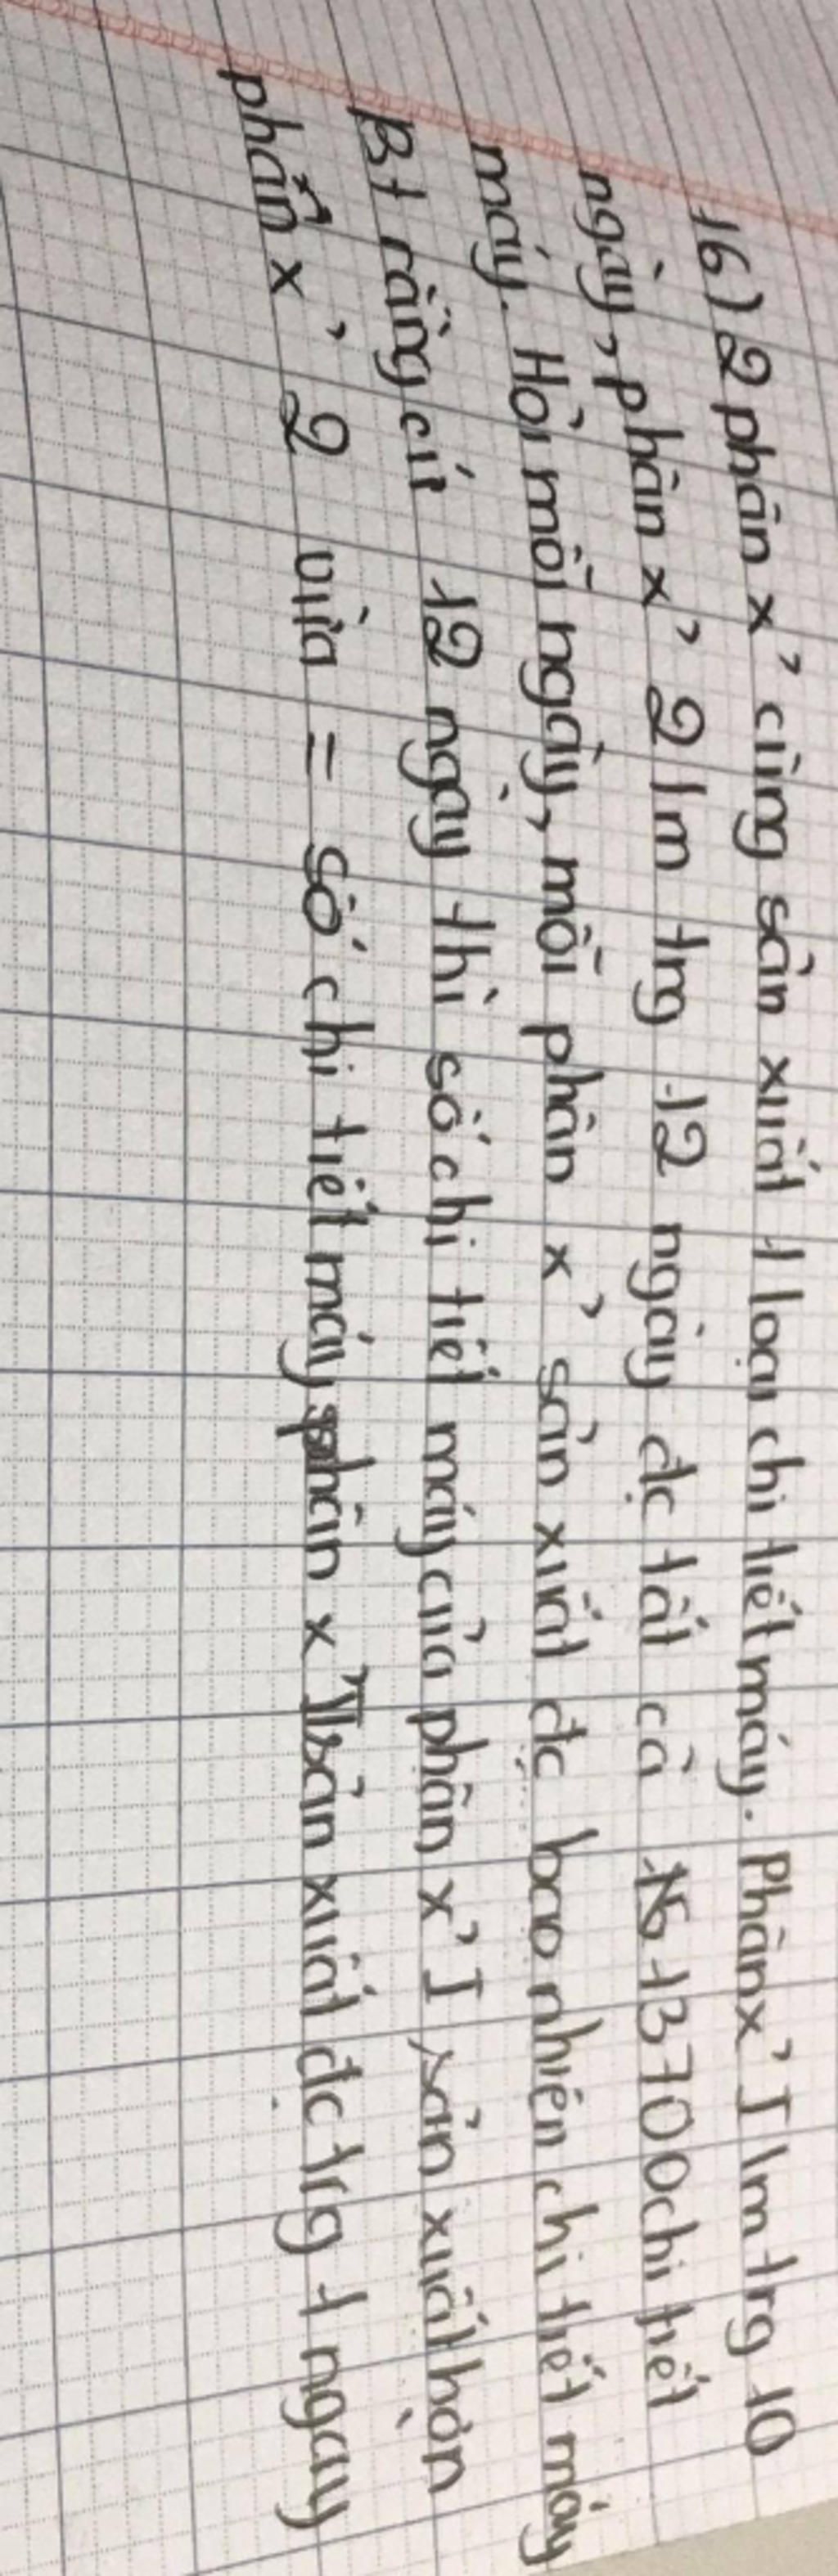 16) 2 phân x' cùng sản xuất 1 loại chi tiết máy. Phân x' I lm trg 10
ngày, phân x' 2 lm trg 12 ngày đc tất cả 13700 chi tiết
máy. Hỏi mỗi ngày, mỗi phân x' sản xuất đc bao nhiên chi tiết máy
Bt rằng cứ 12 ngay thì số chi tiết máy của phân x' I sản xuất hơn
phân x' 2 vừa = số chi tiết máy phân x' II sản xuất đc trg 1 ngay